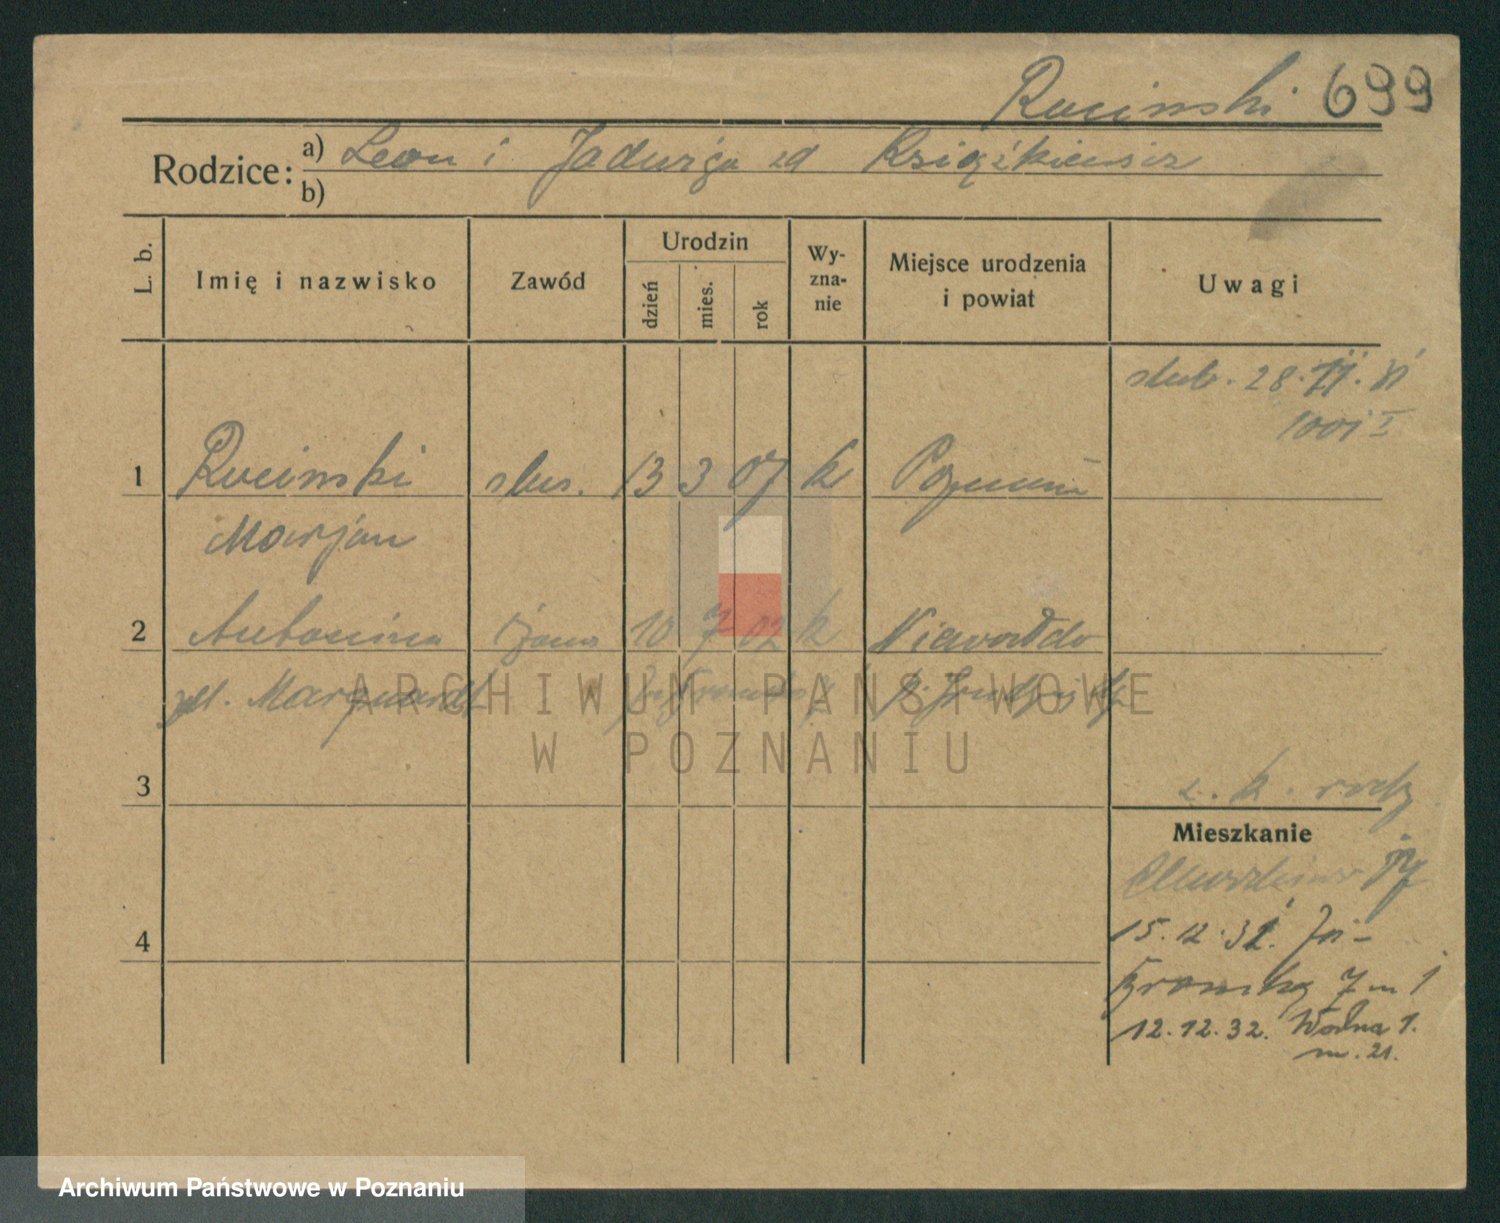 Rucinski 699
Rodzice: a) Leon i Jadwiga zd Książkiewicz
b)
L. b.
Imię i nazwisko
Zawód
Urodzin
dzień
mies.
rok
Wy-
zna-
nie
Miejsce urodzenia
i powiat
Uwagi
ślub. 28.
1001
1 Rucinski ślus. 13 3 07 k Poznań
Marjan
2 Antonina żona 10 7 02 k
zd. Marquardt
3
z. k. rodz
Mieszkanie
4
15.12.31.
7 m 1
12.12.32. Wodna 1.
m. 21.
ARCHIWUM PAŃSTWOWE
W POZNANIU
Archiwum Państwowe w Poznaniu